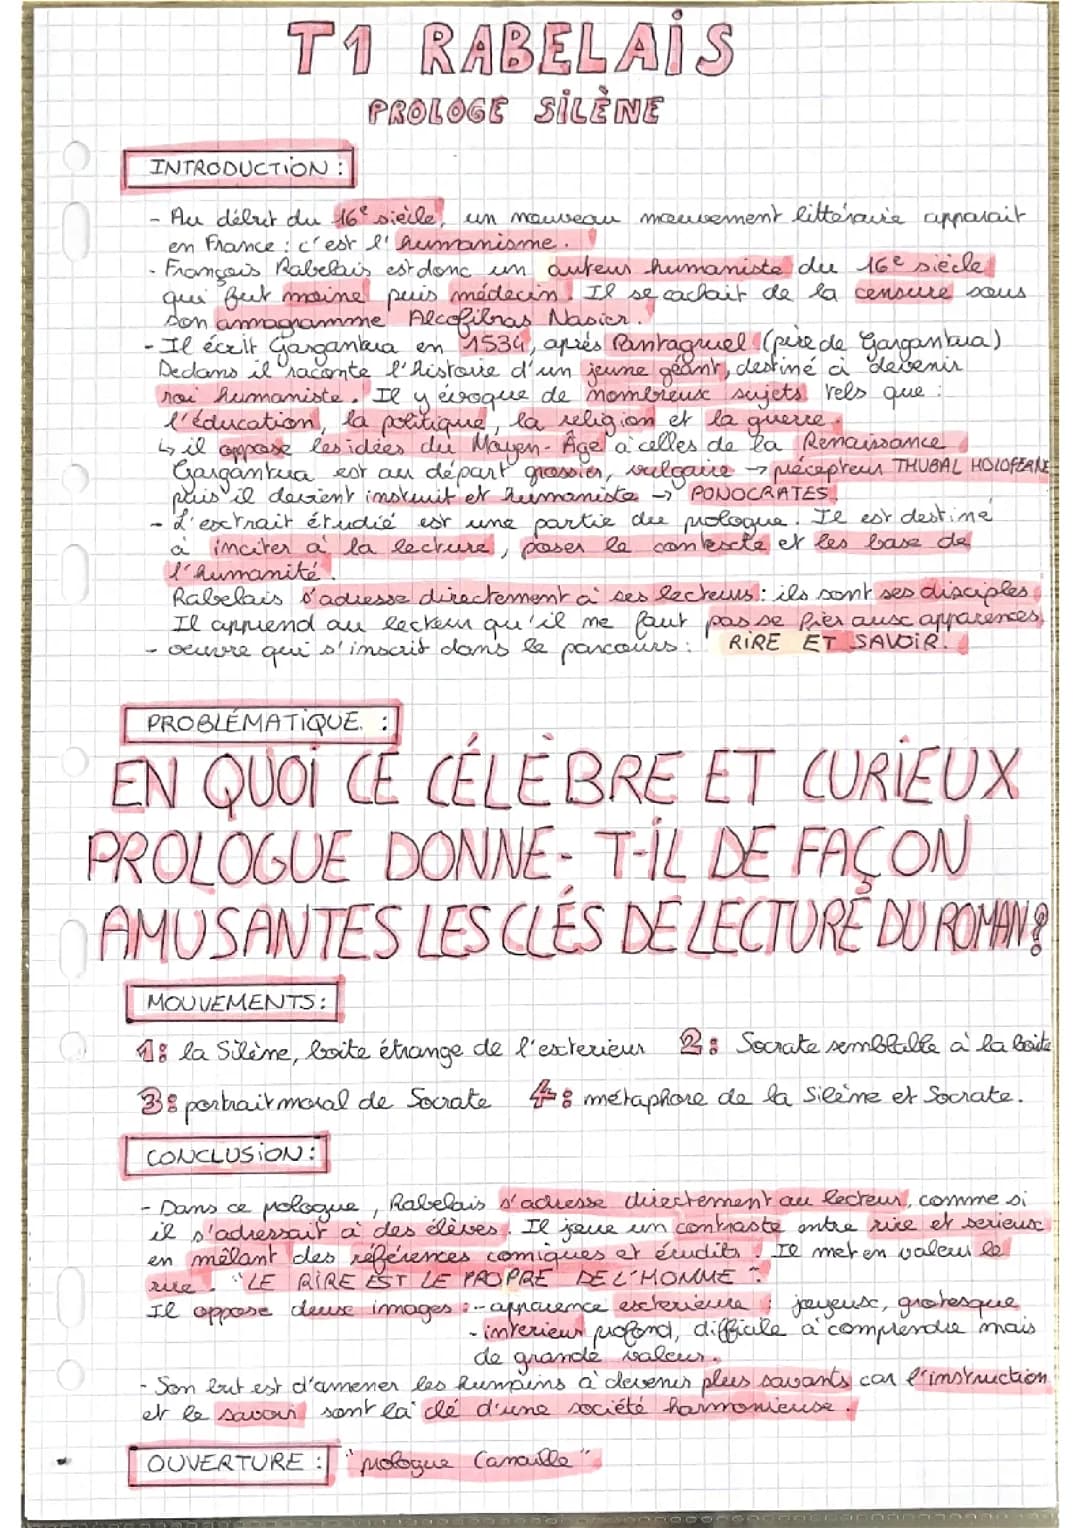 T1 RABELAIS
PROLOGE SILÈNE
INTRODUCTION :
- Au début du 16e siècle, un nouveau mouvement littéraire apparait
en France : c'est l'humanisme.
- François Rabelais est donc un auteur humaniste du 16e siècle
qui fut moine puis médecin. Il se cachait de la censure sous
son annagramme Alcofibras Nasier.
- Il écrit Gargantua en 1534, après Pantagruel (père de Gargantua)
Dedans il raconte l'histoire d'un jeune géant, destiné à devenir
roi humaniste. Il y évoque de nombreux sujets tels que :
l'éducation, la politique, la religion et la guerre.
↳ il oppose les idées du Moyen-Âge à celles de la Renaissance
Gargantua est au départ grossier, vulgaire → précepteur THUBAL HOLOFERNE
puis il devient instruit et humaniste → PONOCRATES
- L'extrait étudié est une partie du prologue. Il est destiné
à inciter à la lecture, poser le contexte et les base de
l'humanité.
Rabelais s'adresse directement à ses lecteurs : ils sont ses disciples
Il apprend au lecteur qu'il ne faut pas se fier aux apparences
- oeuvre qui s'inscrit dans le parcours : RIRE ET SAVOIR.
PROBLÉMATIQUE :
EN QUOI CE CÉLÈBRE ET CURIEUX
PROLOGUE DONNE-T-IL DE FAÇON
AMUSANTES LES CLÉS DE LECTURE DU ROMAN ?
MOUVEMENTS :
1 : la Silène, boite étrange de l'exterieur 2 : Socrate semblable à la boite
3 : portrait moral de Socrate 4 : métaphore de la Silène et Socrate.
CONCLUSION :
- Dans ce pologue, Rabelais s'adresse directement au lecteur, comme si
il s'adressait à des élèves. Il joue un contraste entre rire et serieux
en mêlant des références comiques et érudits. Il met en valeur le
rire. "LE RIRE EST LE PROPRE DE L'HOMME".
Il oppose deux images : - apparence exterieure ; joyeux, grotesque
- interieur profond, difficile à comprendre mais
de grande valeur.
- Son but est d'amener les humains à devenir plus savants car l'instruction
et le savoir sont la clé d'une société harmonieuse.
OUVERTURE : "prologue Canaille"